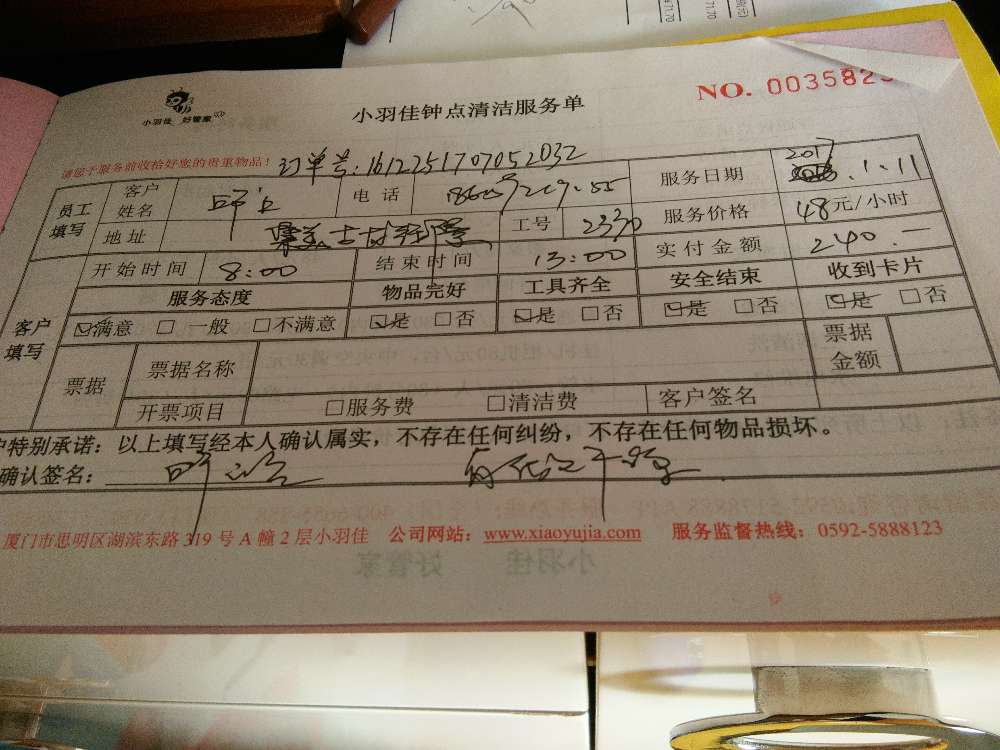 小羽佳 好管家
小羽佳钟点清洁服务单
NO. 003582
请您于服务前收拾好您的贵重物品！
订单号:1612251707052032
员工填写 客户姓名 电话 服务日期 2017.1.11
地址 工号 2330 服务价格 48元/小时
客户填写 开始时间 8:00 结束时间 13:00 实付金额 240.—
服务态度 物品完好 工具齐全 安全结束 收到卡片
☑满意 □一般 □不满意 ☑是 □否 ☑是 □否 ☑是 □否 ☑是 □否
票据 票据名称 票据金额
开票项目 □服务费 □清洁费 客户签名
户特别承诺：以上填写经本人确认属实，不存在任何纠纷，不存在任何物品损坏。
确认签名：
厦门市思明区湖滨东路319号A幢2层小羽佳 公司网站：www.xiaoyujia.com 服务监督热线：0592-5888123